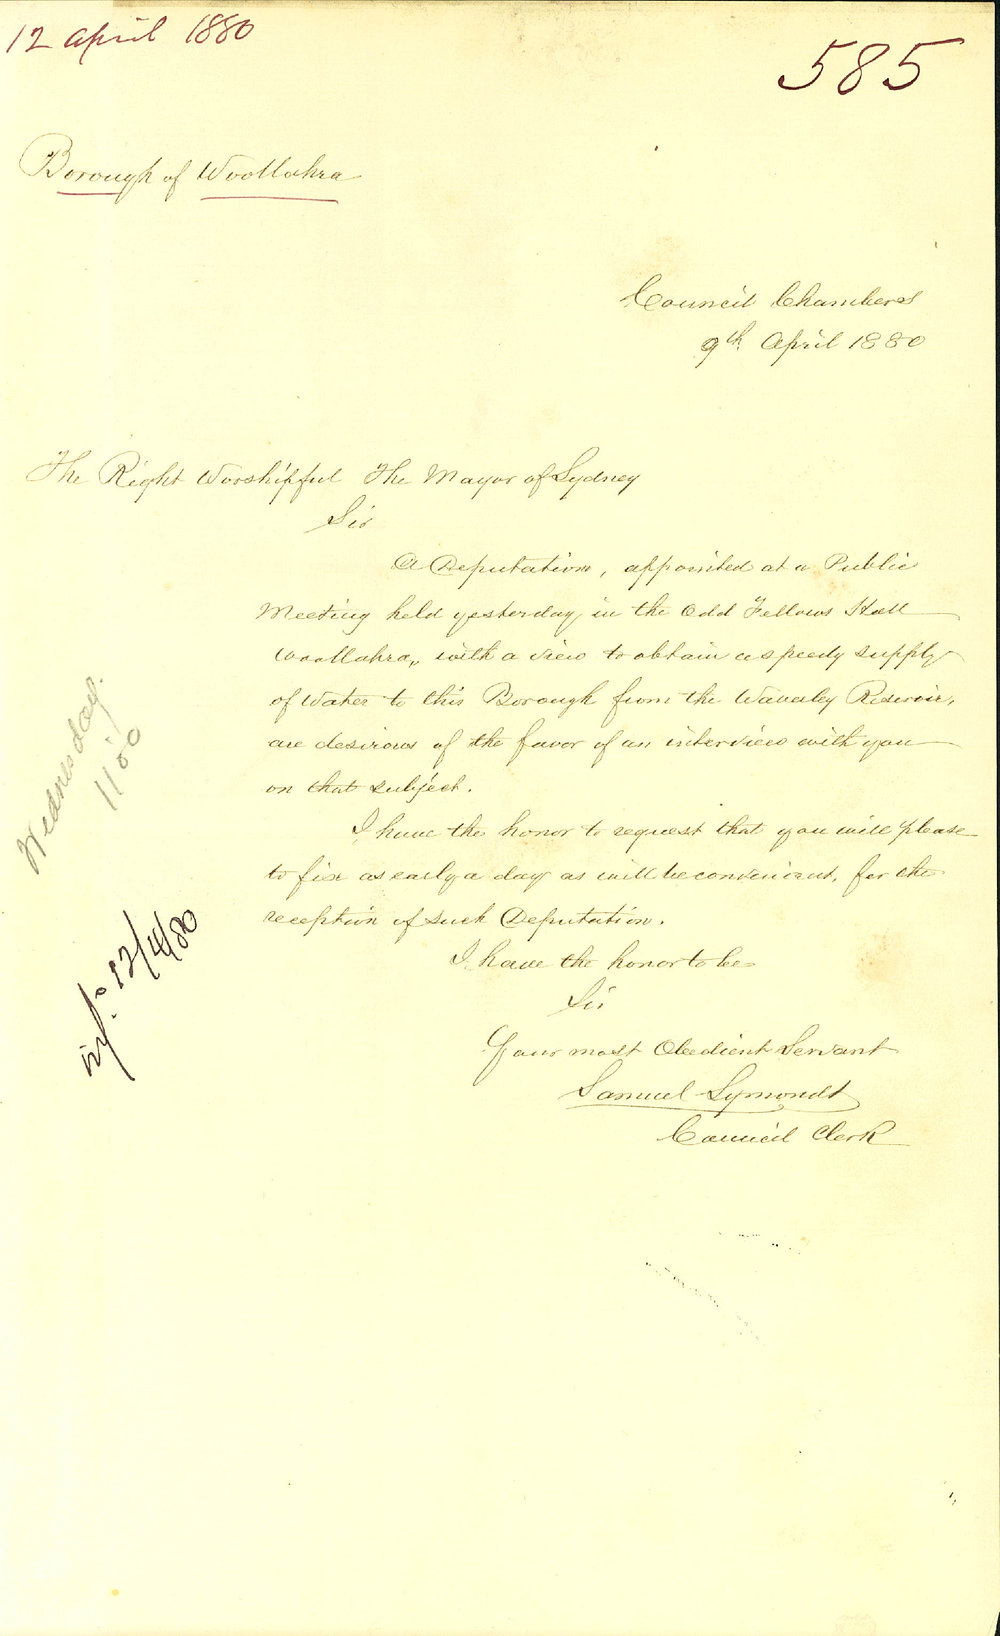 12 April 1880
585
Borough of Woollahra
Council Chambers
9th April 1880
The Right Worshipful The Mayor of Sydney
Sir
A Deputation, appointed at a Public
Meeting held yesterday, in the Odd Fellows Hall
Woollahra, with a view to obtain a speedy supply
of Water to this Borough from the Waverley Reservoir,
are desirous of the favor of an interview with you
on that subject.
I have the honor to request that you will please
to fix as early a day as will be convenient, for the
reception of such Deputation.
I have the honor to be
Sir
Your most Obedient Servant
Samuel Symonds
Council Clerk
Wednesday.
11
12/4/80